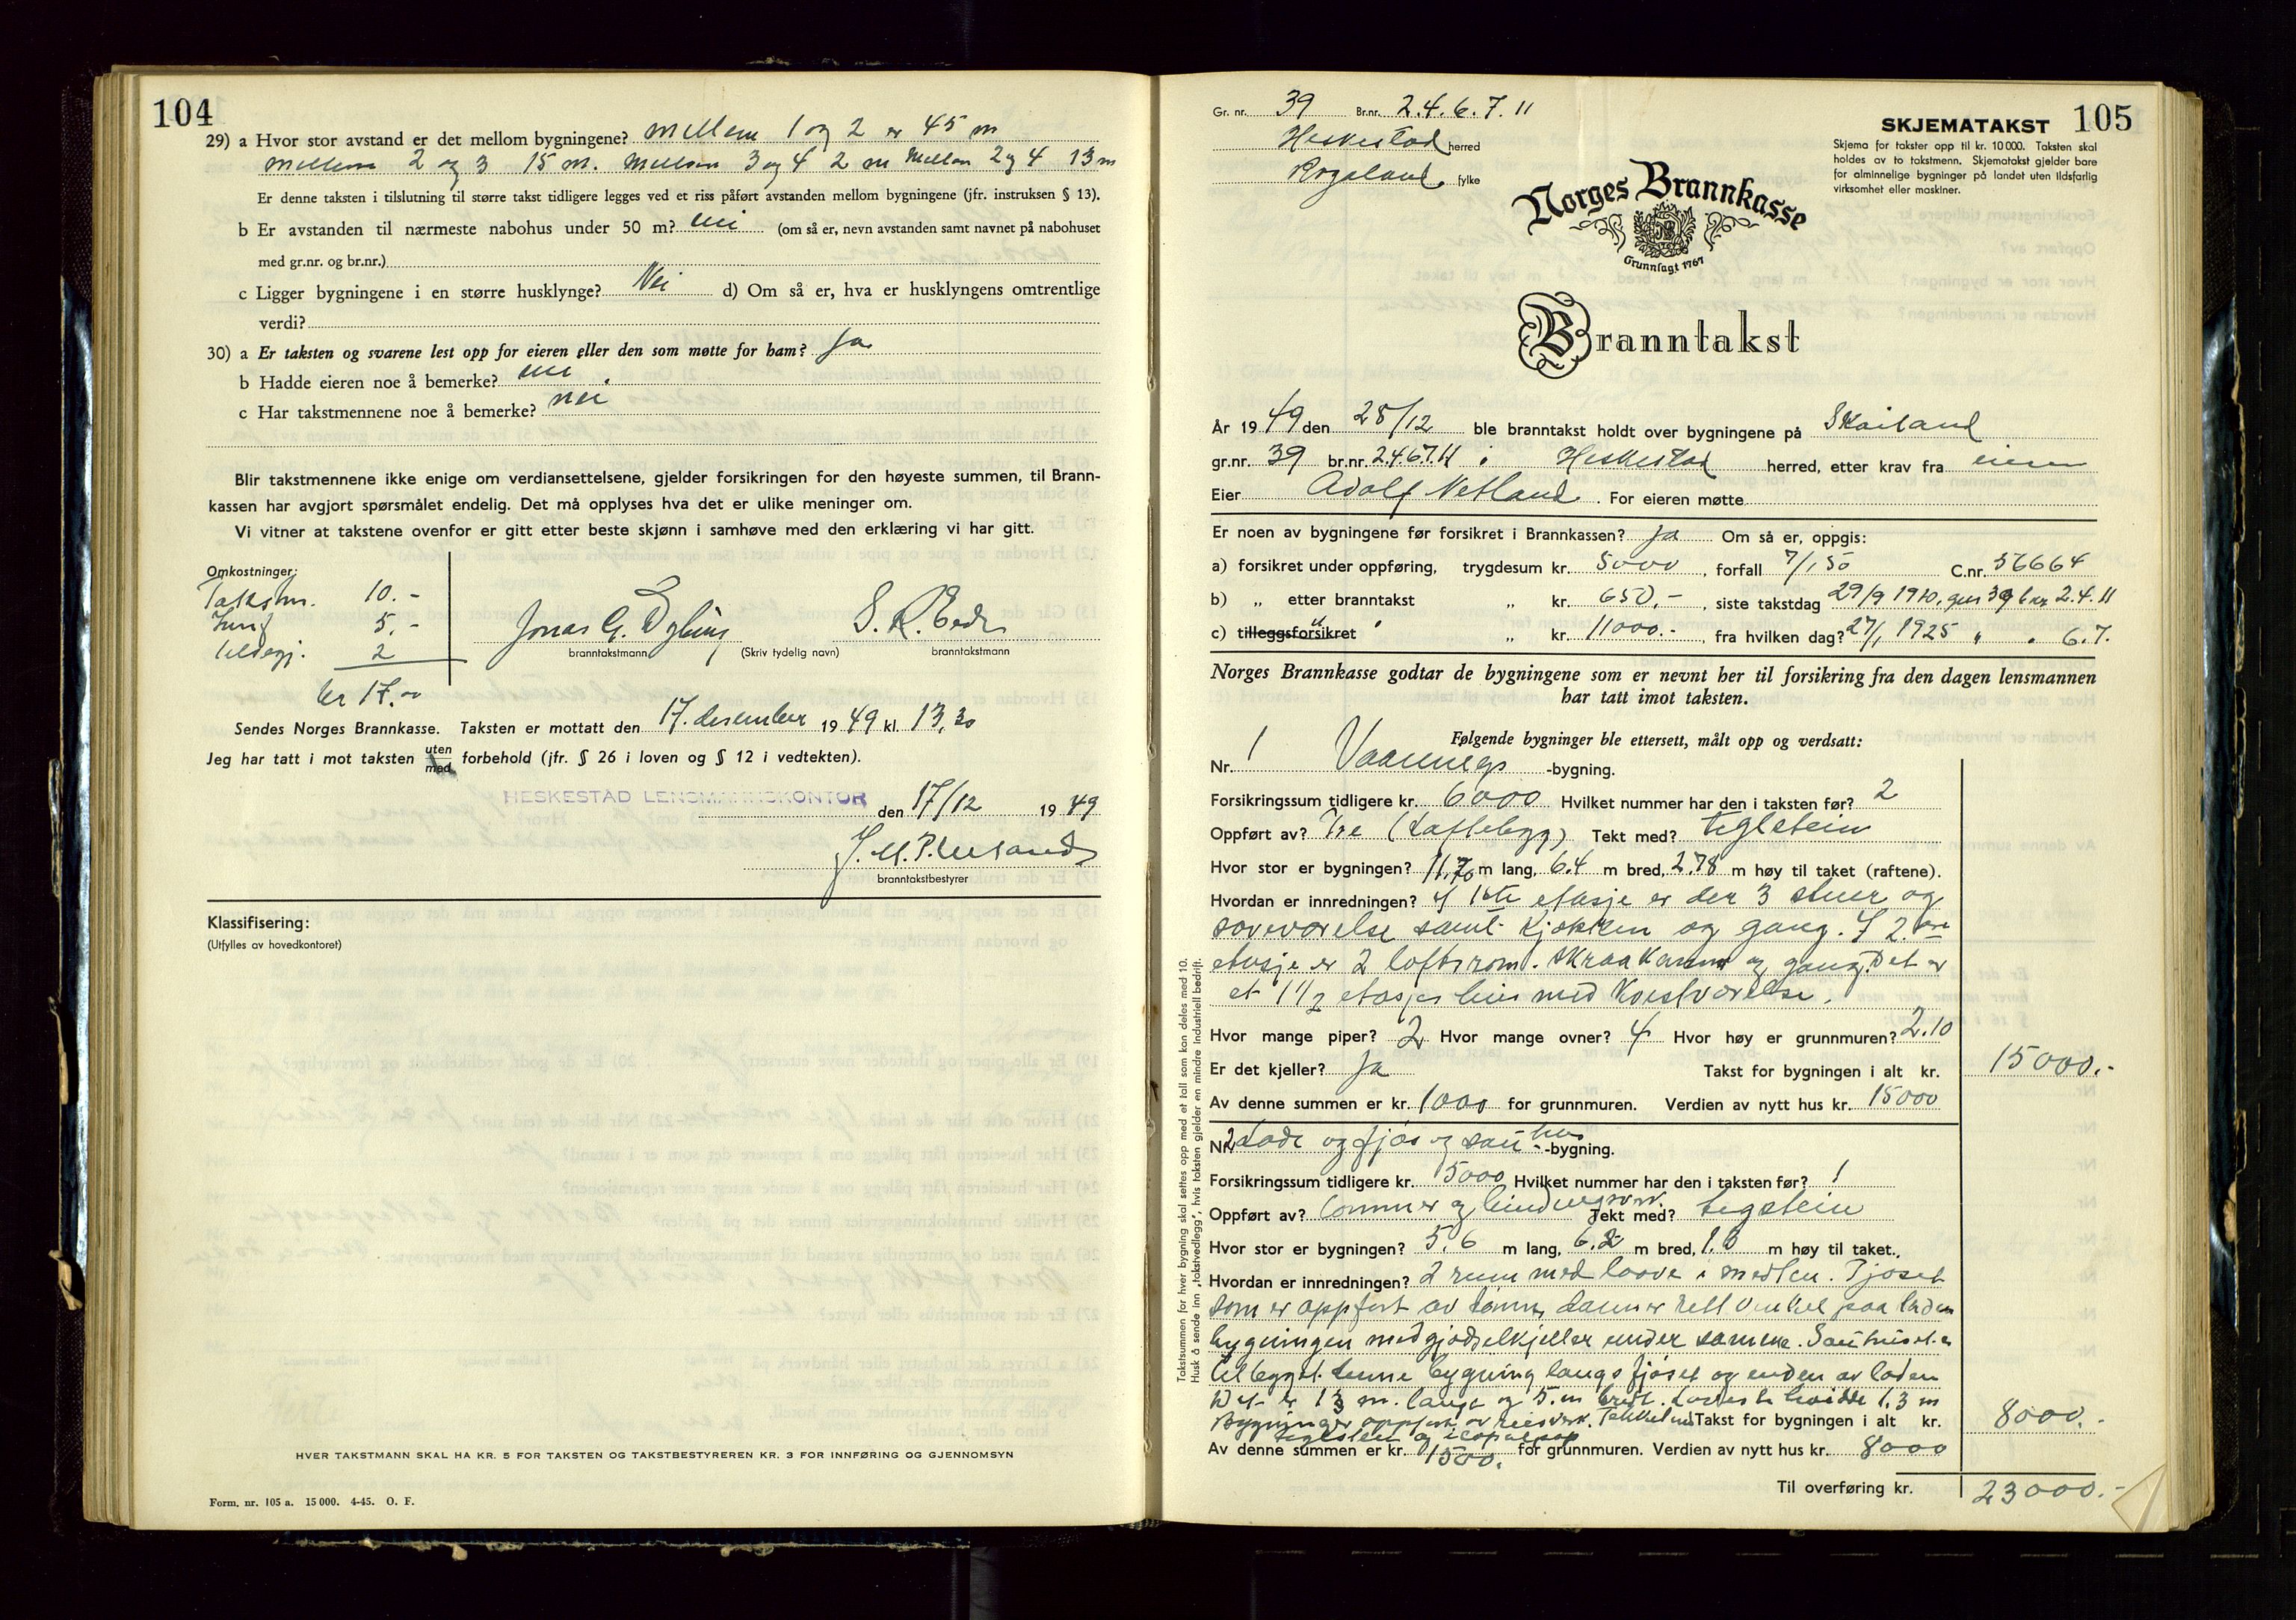 104
29) a Hvor stor avstand er det mellom bygningene? Mellem 1 og 2 er 45 m
mellem 2 og 3 15 m. Mellem 3 og 4 2 m Mellem 2 og 4 13 m
Er denne taksten i tilslutning til større takst tidligere legges ved et riss påført avstanden mellom bygningene (jfr. instruksen § 13).
b Er avstanden til nærmeste nabohus under 50 m? nei (om så er, nevn avstanden samt navnet på nabohuset
med gr.nr. og br.nr.)
c Ligger bygningene i en større husklynge? Nei d) Om så er, hva er husklyngens omtrentlige
verdi?
30) a Er taksten og svarene lest opp for eieren eller den som møtte for ham? Ja
b Hadde eieren noe å bemerke? nei
c Har takstmennene noe å bemerke? nei
Blir takstmennene ikke enige om verdiansettelsene, gjelder forsikringen for den høyeste summen, til Brann-
kassen har avgjort spørsmålet endelig. Det må opplyses hva det er ulike meninger om.
Vi vitner at takstene ovenfor er gitt etter beste skjønn i samhøve med den erklæring vi har gitt.
Omkostninger:
Takstm. 10.-
5.-
2
kr 17.00
Jonas G. S. R.
branntakstmann (Skriv tydelig navn) branntakstmann
Sendes Norges Brannkasse. Taksten er mottatt den 17. desember 1949 kl. 13,30
Jeg har tatt i mot taksten uten
med forbehold (jfr. § 26 i loven og § 12 i vedtekten).
HESKESTAD LENSMANNSKONTOR den 17/12 1949
branntakstbestyrer
Klassifisering:
(Utfylles av hovedkontoret)
HVER TAKSTMANN SKAL HA KR. 5 FOR TAKSTEN OG TAKSTBESTYREREN KR. 3 FOR INNFØRING OG GJENNOMSYN
Form. nr. 105 a. 15 000. 4-45. O. F.
Gr. nr. 39 Br.nr. 2.4.6.7.11
Heskestad herred
Rogaland fylke
SKJEMATAKST 105
Skjema for takster opp til kr. 10 000. Taksten skal
holdes av to takstmenn. Skjematakst gjelder bare
for alminnelige bygninger på landet uten ildsfarlig
virksomhet eller maskiner.
Norges Brannkasse
Grunnlagt 1767
Branntakst
År 1949 den 28/12 ble branntakst holdt over bygningene på Skailand
gr.nr. 39 br.nr. 2.4.6.7.11 i Heskestad herred, etter krav fra eieren
Eier Adolf Netland. For eieren møtte
Er noen av bygningene før forsikret i Brannkassen? Ja Om så er, oppgis:
a) forsikret under oppføring, trygdesum kr. 5000, forfall 7/1 50 C.nr. 56664
b) „ etter branntakst „ kr. 650.-, siste takstdag 29/9 1910, gnr 39 bnr 2.4.11
c) tilleggsforsikret „ kr. 11000.-, fra hvilken dag? 27/1 1925 „ „ 6.7.
Norges Brannkasse godtar de bygningene som er nevnt her til forsikring fra den dagen lensmannen
har tatt imot taksten.
Følgende bygningene ble ettersett, målt opp og verdsatt:
Nr. 1 Vaanings -bygning.
Forsikringssum tidligere kr. 6000 Hvilket nummer har den i taksten før? 2
Oppført av? Tre (Laftebygg) Tekt med? teglstein
Hvor stor er bygningen? 11.70 m lang, 6.4 m bred, 2.78 m høy til taket (raftene).
Hvordan er innredningen? I 1ste etasje er der 3 stuer og
soveværelse samt kjøkken og gang. I 2. dre
etasje er 2 loftsrom. Skraakammer og gang. Det er
et 1 1/2 etasjes hus med Kvistværelse.
Hvor mange piper? 2 Hvor mange ovner? 4 Hvor høy er grunnmuren? 2.10
Er det kjeller? Ja Takst for bygningen i alt kr. 15000.-
Av denne summen er kr. 1000 for grunnmuren. Verdien av nytt hus kr. 15000
Nr. 2 Lade og fjøs og sauehus -bygning.
Forsikringssum tidligere kr. 5000 Hvilket nummer har den i taksten før? 1
Oppført av? Tømmer og bindingsverk. Tekt med? teglstein
Hvor stor er bygningen? 5.6 m lang, 6.2 m bred, 1.3 m høy til taket.
Hvordan er innredningen? 2 rum med laave i mellem. Fjøset
som er oppført av tømm, danner rett vinkel paa lade
bygningen med gjødselkjeller under samme. Sauehuset er
tilbygget denne bygning langs fjøset og enden av laden
Det er 13 m. langt og 5. m bredt. høide 1.3 m
Bygninger oppført av reisverk. Takst for bygningen i alt kr. 8000.-
teglstein og
Av denne summen er kr. 1500. for grunnmuren. Verdien av nytt hus kr. 8000
Til overføring kr. 23000.-
Takstsummen for hver bygning skal settes opp med et tall som kan deles med 10.
Husk å sende inn „takstvedlegg", hvis taksten gjelder en mindre industriell bedrift.